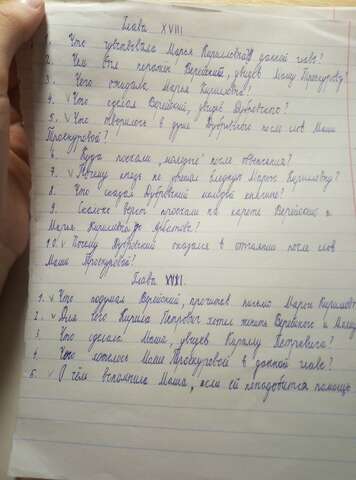 Глава XVIII
1. Что чувствовала Марья Кириловна в данной главе?
2. Чем был поражен Верейский, увидев Машу Троекурову?
3. Чего ожидала Марья Кириловна?
4. ✓ Что сделал Верейский, увидев Дубровского?
5. ✓ Что творилось в душе Дубровского после слов Маши
Троекуровой?
6. Куда поехали "молодые" после венчания?
7. ✓ Почему князь не утешал бледную Марью Кириловну?
8. Что сказал Дубровский молодой княгине?
9. Сколько верст проехали на карете Верейский и
Марья Кириловна до Арбатова?
10. ✓ Почему Дубровский оказался в отчаянии после слов
Маши Троекуровой?
Глава XVI.
1. ✓ Что подумал Верейский, прочитав письмо Марьи Кириловны
2. ✓ Для чего Кирила Петрович хотел женить Верейского и Машу
3. Что сделала Маша, увидев Кирилу Петровича?
4. Что хотелось Маше Троекуровой в данной главе?
5. ✓ О чём вспомнила Маша, если ей понадобится помощь